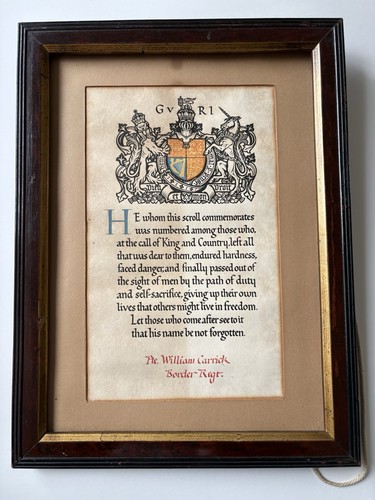 GVRI
HE whom this scroll commemorates
was numbered among those who,
at the call of King and Country, left all
that was dear to them, endured hardness,
faced danger, and finally passed out of
the sight of men by the path of duty
and self-sacrifice, giving up their own
lives that others might live in freedom.
Let those who come after see to it
that his name be not forgotten.
Pte. William Carrick
Border Regt.